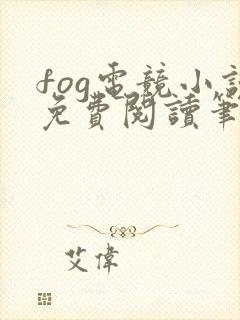 fog電競小說
免費閱讀筆
艾偉